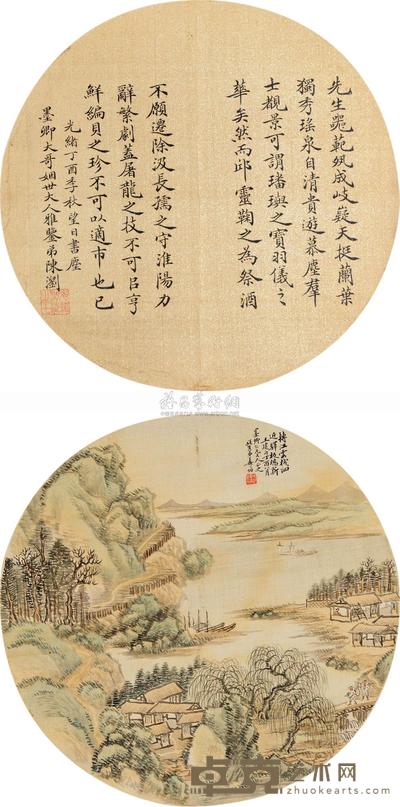 先生器範夙成岐嶷天挺蘭葉
獨秀瑤泉自清貴遊慕塵羣
士觀景可謂璠璵之寶羽儀之
華矣然而邱靈鞠之為祭酒
不願遷除汲長孺之守淮陽力
辭繁劇蓋屠龍之技不可㠯亨
鮮編貝之珍不可以適市也已
光緒丁酉季秋望日書塵
墨卿大哥姻世大人雅鑒弟陳瀏
卓克艺术网
www.zhuokearts.com